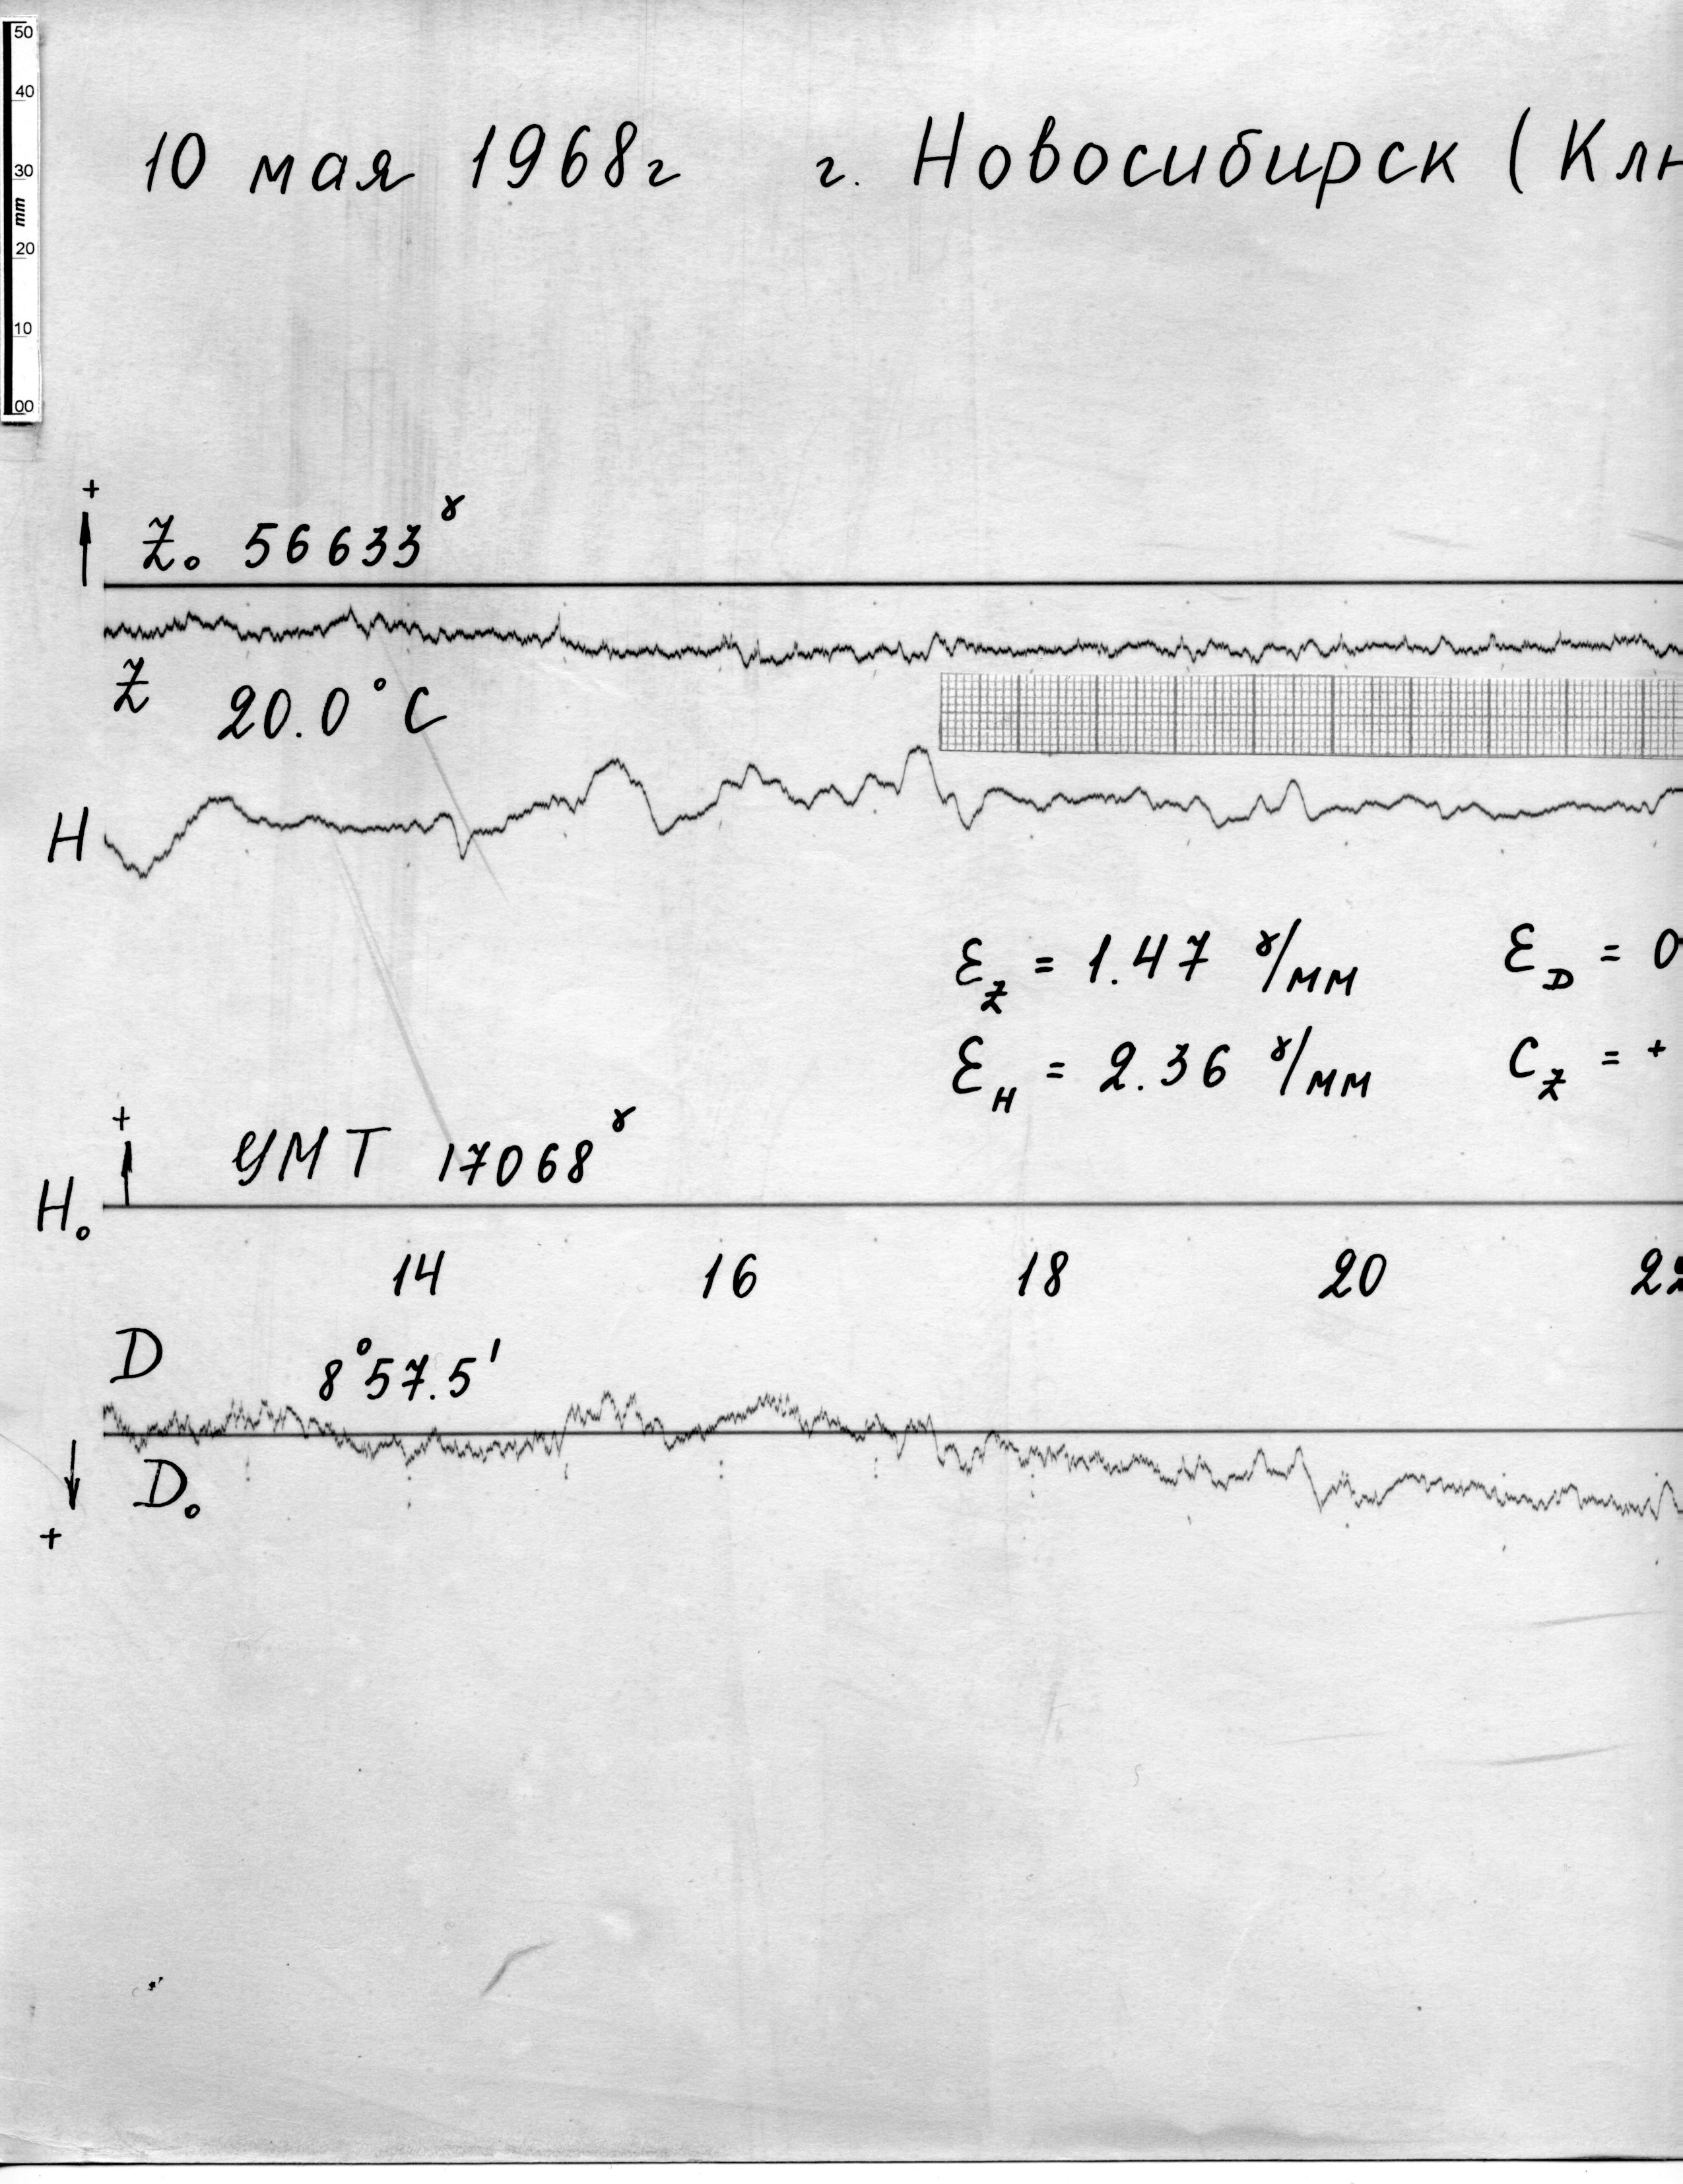 50
40
30
mm
20
10
00
10 мая 1968г г. Новосибирск (Клю
+
Z₀ 56633ˠ
Z 20.0°C
H
Ɛ_Z = 1.47 ɤ/мм Ɛ_D = 0
Ɛ_H = 2.36 ɤ/мм C_Z = +
+
УМТ 17068ˠ
H₀
14 16 18 20 22
D
8°57.5'
D₀
+